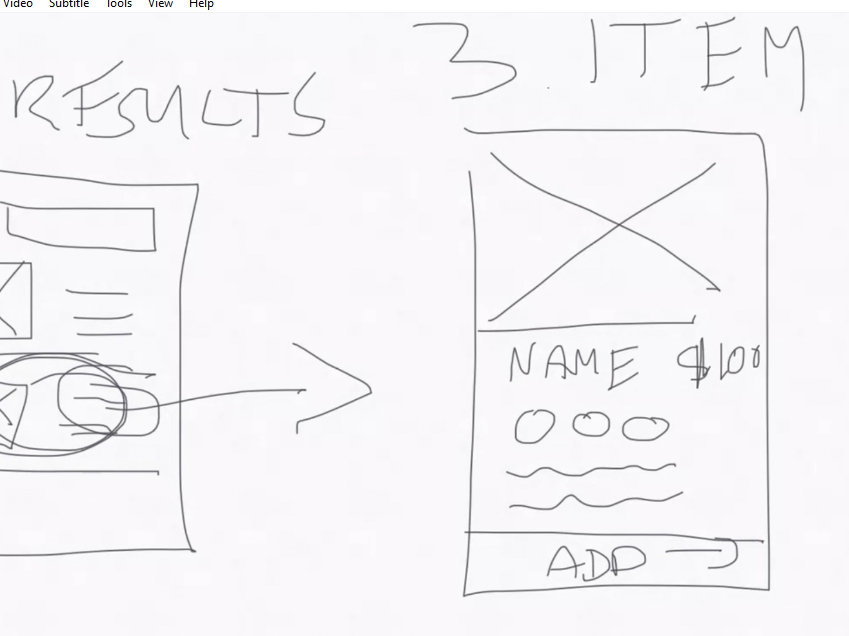 Video Subtitle Tools View Help
RESULTS
3. ITEM
NAME $100
ADD